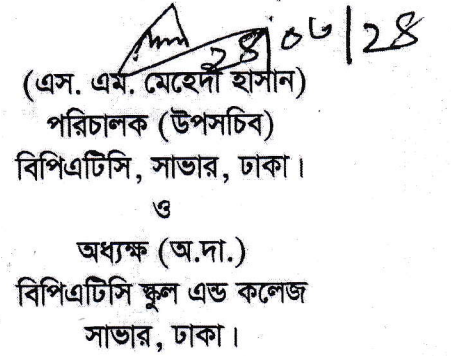 ২৪/০৬/২৪
(এস. এম. মেহেদী হাসান)
পরিচালক (উপসচিব)
বিপিএটিসি, সাভার, ঢাকা।
ও
অধ্যক্ষ (অ.দা.)
বিপিএটিসি স্কুল এন্ড কলেজ
সাভার, ঢাকা।